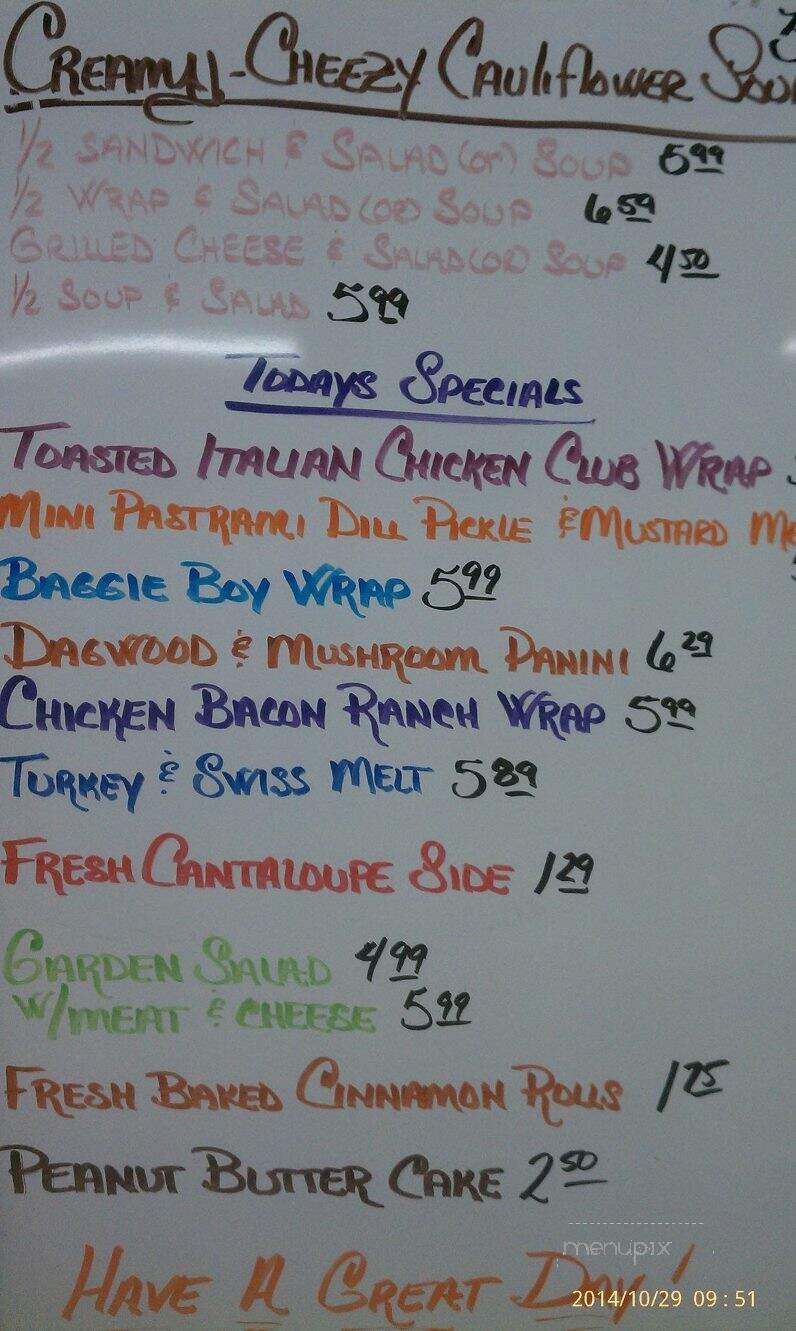 CREAMY-CHEEZY CAULIFLOWER
1/2 SANDWICH & SALAD (OR) SOUP 5.99
1/2 WRAP & SALAD (OR) SOUP 6.59
GRILLED CHEESE & SALAD (OR) SOUP 4.50
1/2 SOUP & SALAD 5.99
TODAYS SPECIALS
TOASTED ITALIAN CHICKEN CLUB WRAP
MINI PASTRAMI DILL PICKLE & MUSTARD
BAGGIE BOY WRAP 5.99
DAGWOOD & MUSHROOM PANINI 6.29
CHICKEN BACON RANCH WRAP 5.99
TURKEY & SWISS MELT 5.89
FRESH CANTALOUPE SIDE 1.29
GARDEN SALAD 4.99
W/MEAT & CHEESE 5.99
FRESH BAKED CINNAMON ROLLS 1.75
PEANUT BUTTER CAKE 2.50
menupix
HAVE A GREAT DAY!
2014/10/29 09:51